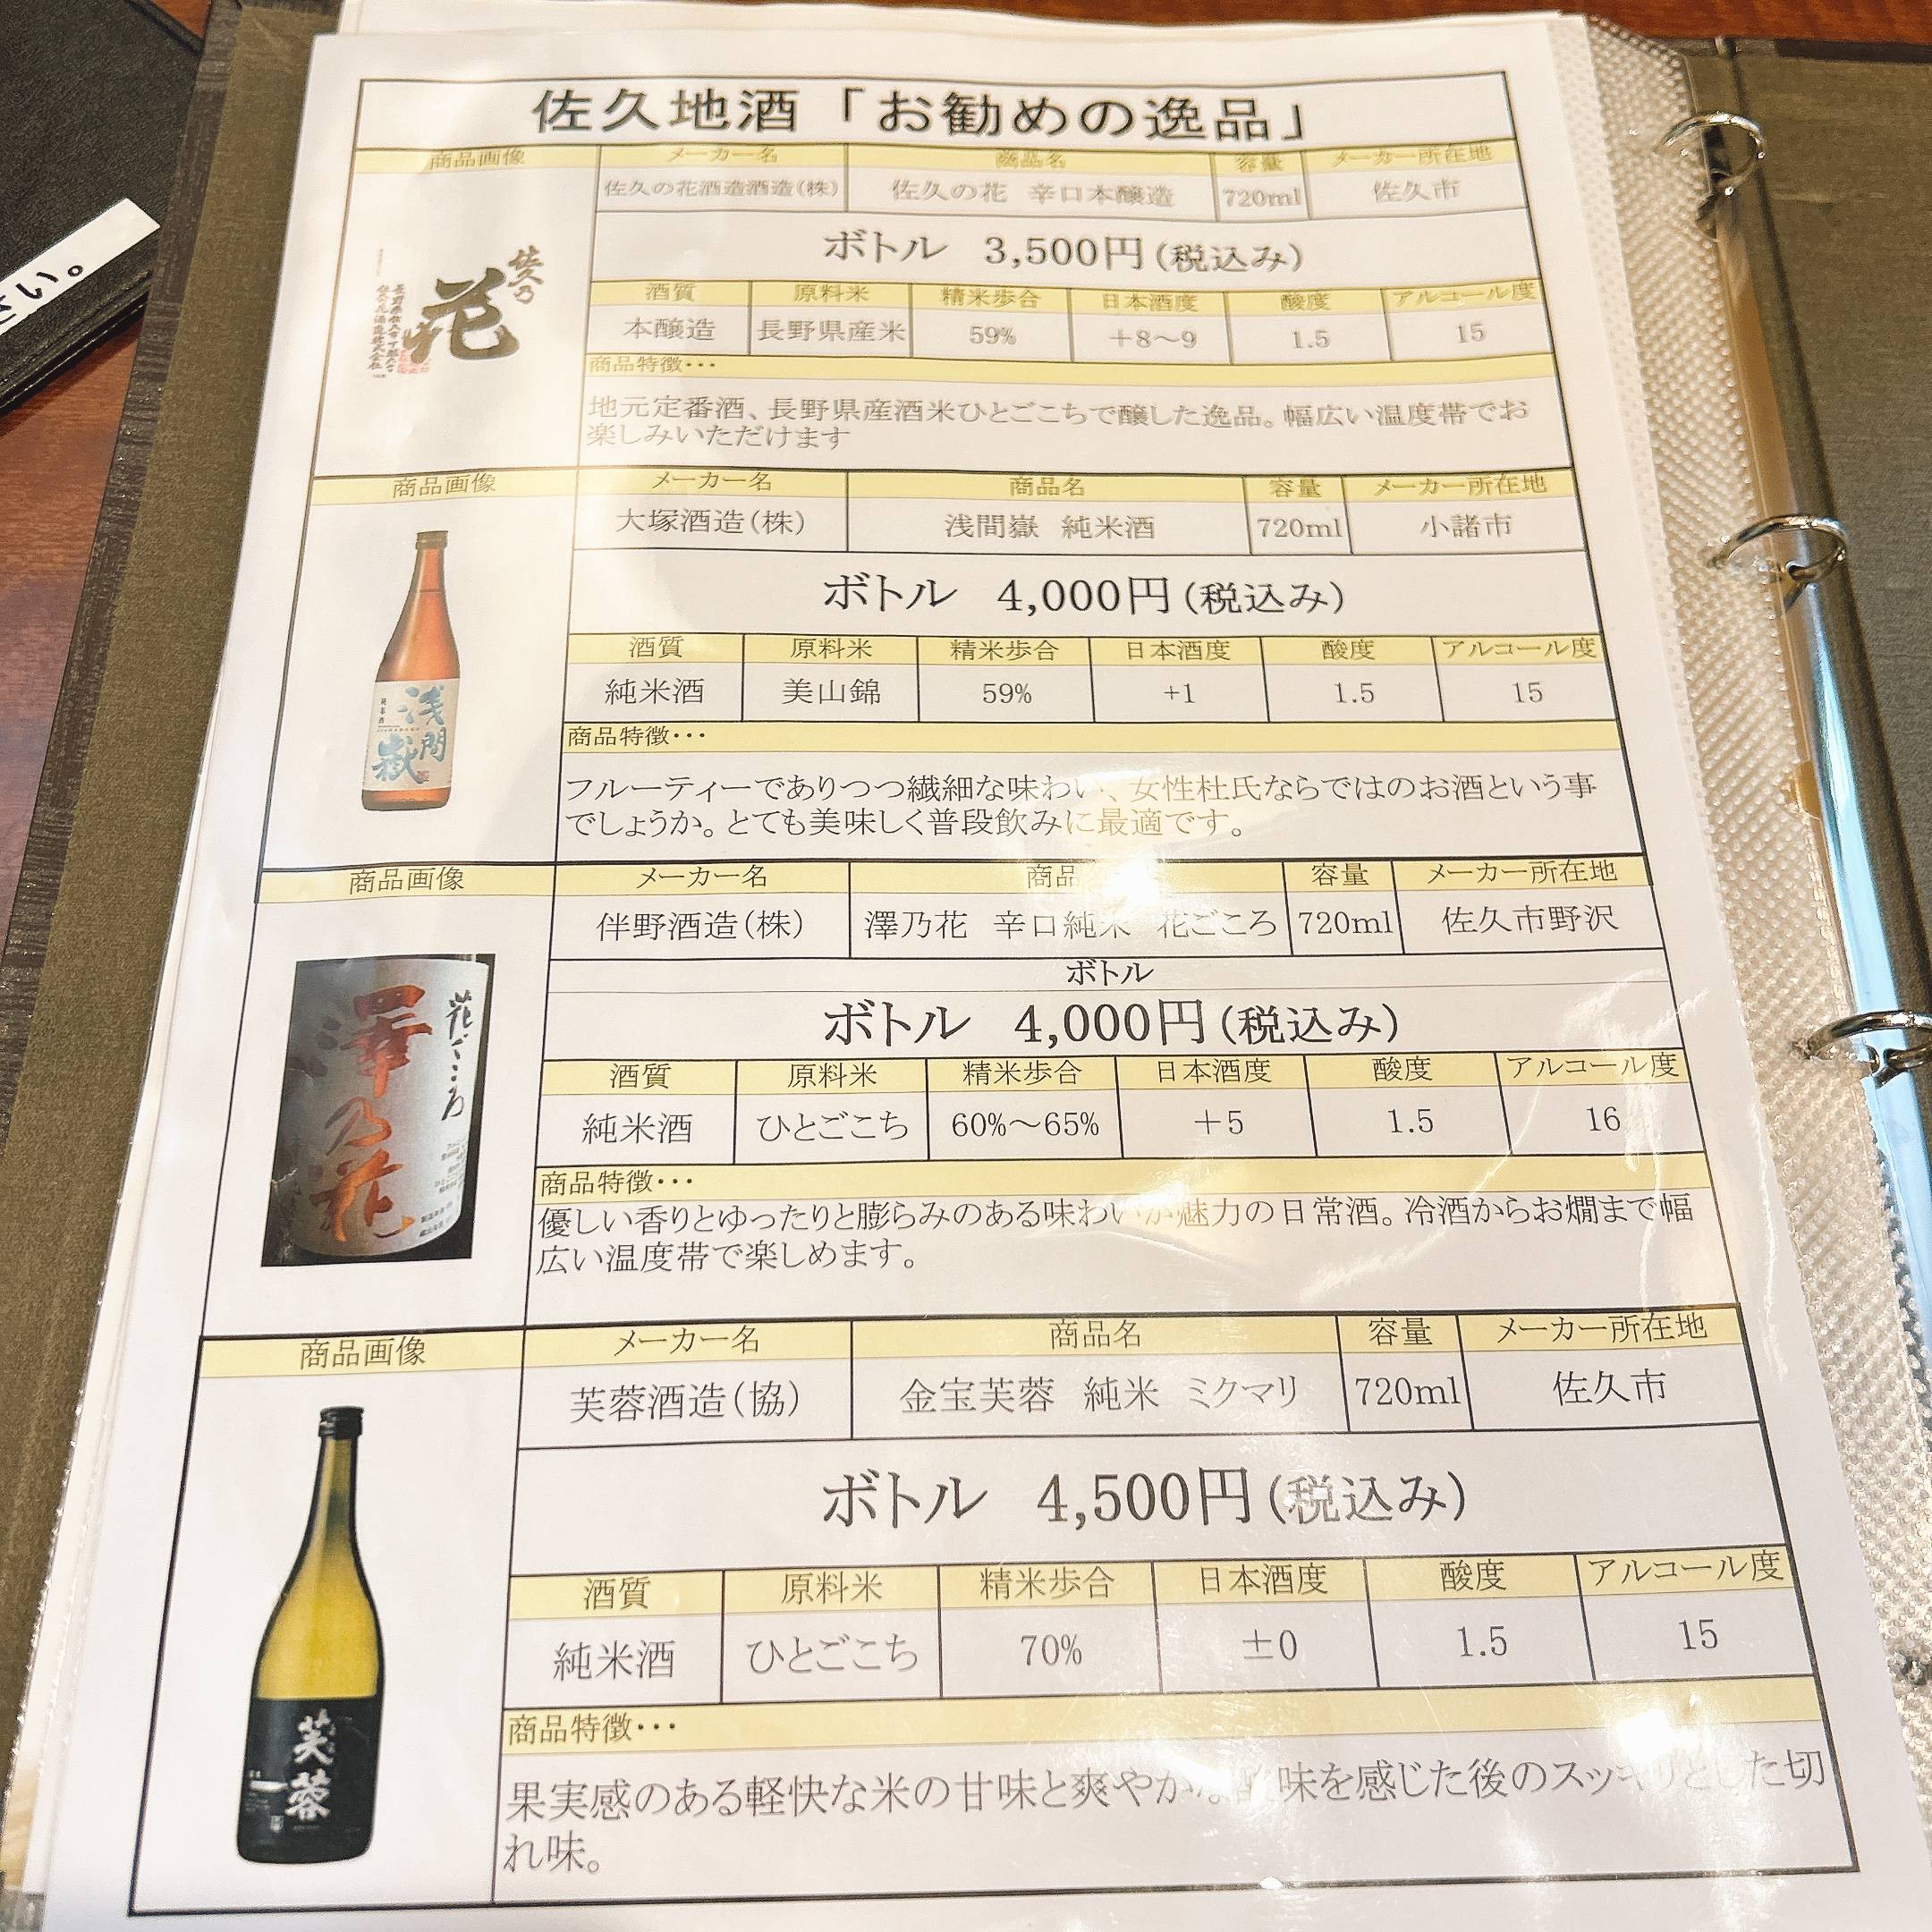 佐久地酒「お勧めの逸品」
商品画像 メーカー名 商品名 容量 メーカー所在地
佐久の花酒造酒造(株) 佐久の花 辛口本醸造 720ml 佐久市
ボトル 3,500円(税込み)
佐久乃
花
酒質 原料米 精米歩合 日本酒度 酸度 アルコール度
本醸造 長野県産米 59% +8~9 1.5 15
商品特徴･･･
地元定番酒、長野県産酒米ひとごこちで醸した逸品。幅広い温度帯でお
楽しみいただけます
商品画像 メーカー名 商品名 容量 メーカー所在地
大塚酒造(株) 浅間嶽 純米酒 720ml 小諸市
ボトル 4,000円(税込み)
酒質 原料米 精米歩合 日本酒度 酸度 アルコール度
純米酒 美山錦 59% +1 1.5 15
純米酒
浅間
嶽
商品特徴･･･
フルーティーでありつつ繊細な味わい、女性杜氏ならではのお酒という事
でしょうか。とても美味しく普段飲みに最適です。
商品画像 メーカー名 商品 容量 メーカー所在地
伴野酒造(株) 澤乃花 辛口純米 花ごころ 720ml 佐久市野沢
ボトル
ボトル 4,000円(税込み)
花ごころ
澤乃花
酒質 原料米 精米歩合 日本酒度 酸度 アルコール度
純米酒 ひとごこち 60%~65% +5 1.5 16
商品特徴･･･
優しい香りとゆったりと膨らみのある味わいが魅力の日常酒。冷酒からお燗まで幅
広い温度帯で楽しめます。
商品画像 メーカー名 商品名 容量 メーカー所在地
芙蓉酒造(協) 金宝芙蓉 純米 ミクマリ 720ml 佐久市
ボトル 4,500円(税込み)
酒質 原料米 精米歩合 日本酒度 酸度 アルコール度
純米酒 ひとごこち 70% ±0 1.5 15
芙蓉
商品特徴･･･
果実感のある軽快な米の甘味と爽やかな酸味を感じた後のスッキリとした切
れ味。